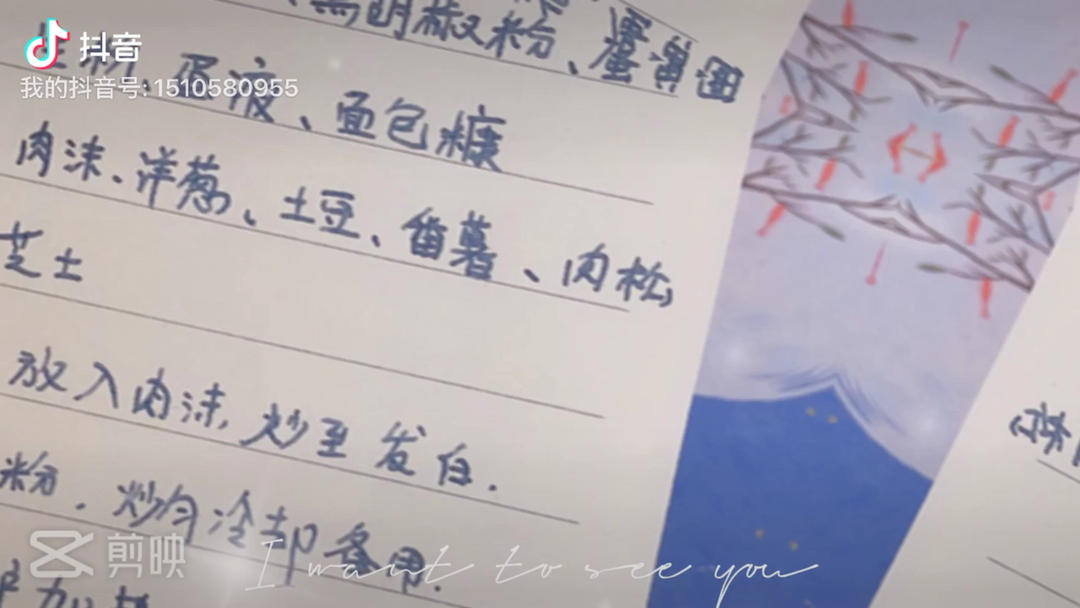 黑胡椒粉、蛋黄
抖音
我的抖音号: 1510580955
蛋液、面包糠
肉沫、洋葱、土豆、番薯、肉松
芝士
放入肉沫, 炒至发白.
粉. 炒匀冷却备用.
剪映
I want to see you
加